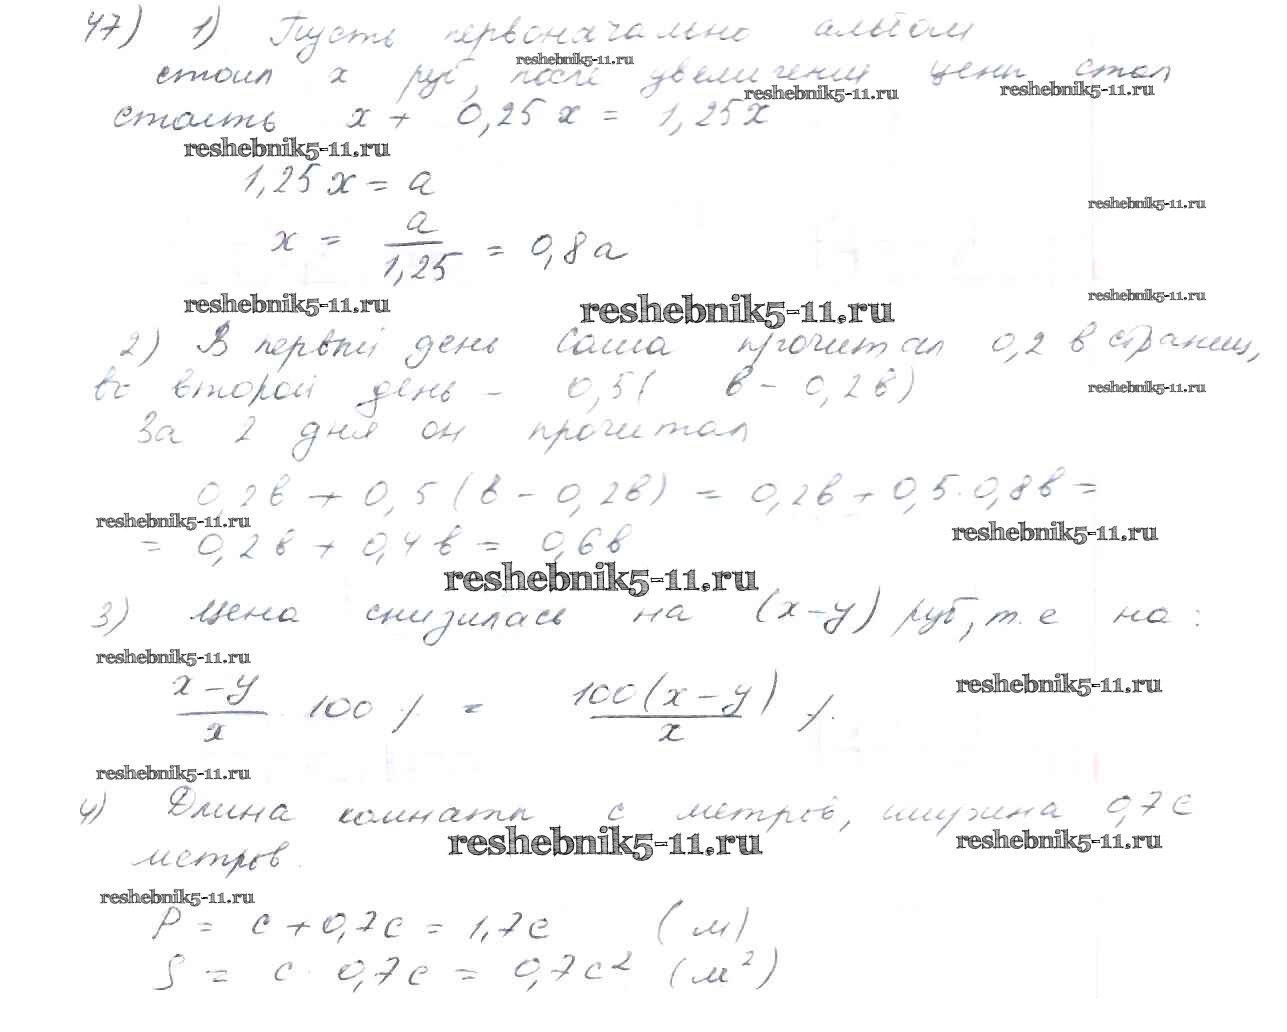 47) 1) Пусть первоначально альбом
reshebnik5-11.ru
стоил x руб, после увеличения цены стал
reshebnik5-11.ru reshebnik5-11.ru
стоить x + 0,25x = 1,25x
reshebnik5-11.ru
1,25x = a
reshebnik5-11.ru
x = a/1,25 = 0,8a
reshebnik5-11.ru reshebnik5-11.ru reshebnik5-11.ru
2) В первый день Саша прочитал 0,2в страниц,
во второй день - 0,5( в - 0,2в)
reshebnik5-11.ru
За 2 дня он прочитал
0,2в + 0,5(в - 0,2в) = 0,2в + 0,5·0,8в =
reshebnik5-11.ru reshebnik5-11.ru
= 0,2в + 0,4в = 0,6в
reshebnik5-11.ru
3) Цена снизилась на (x-y) руб, т.е на:
reshebnik5-11.ru reshebnik5-11.ru
x-y/x 100 % = 100(x-y)/x %
reshebnik5-11.ru
4) Длина комнаты c метров, ширина 0,7c
reshebnik5-11.ru reshebnik5-11.ru
метров.
reshebnik5-11.ru
P = c + 0,7c = 1,7c (м)
S = c · 0,7c = 0,7c² (м²)